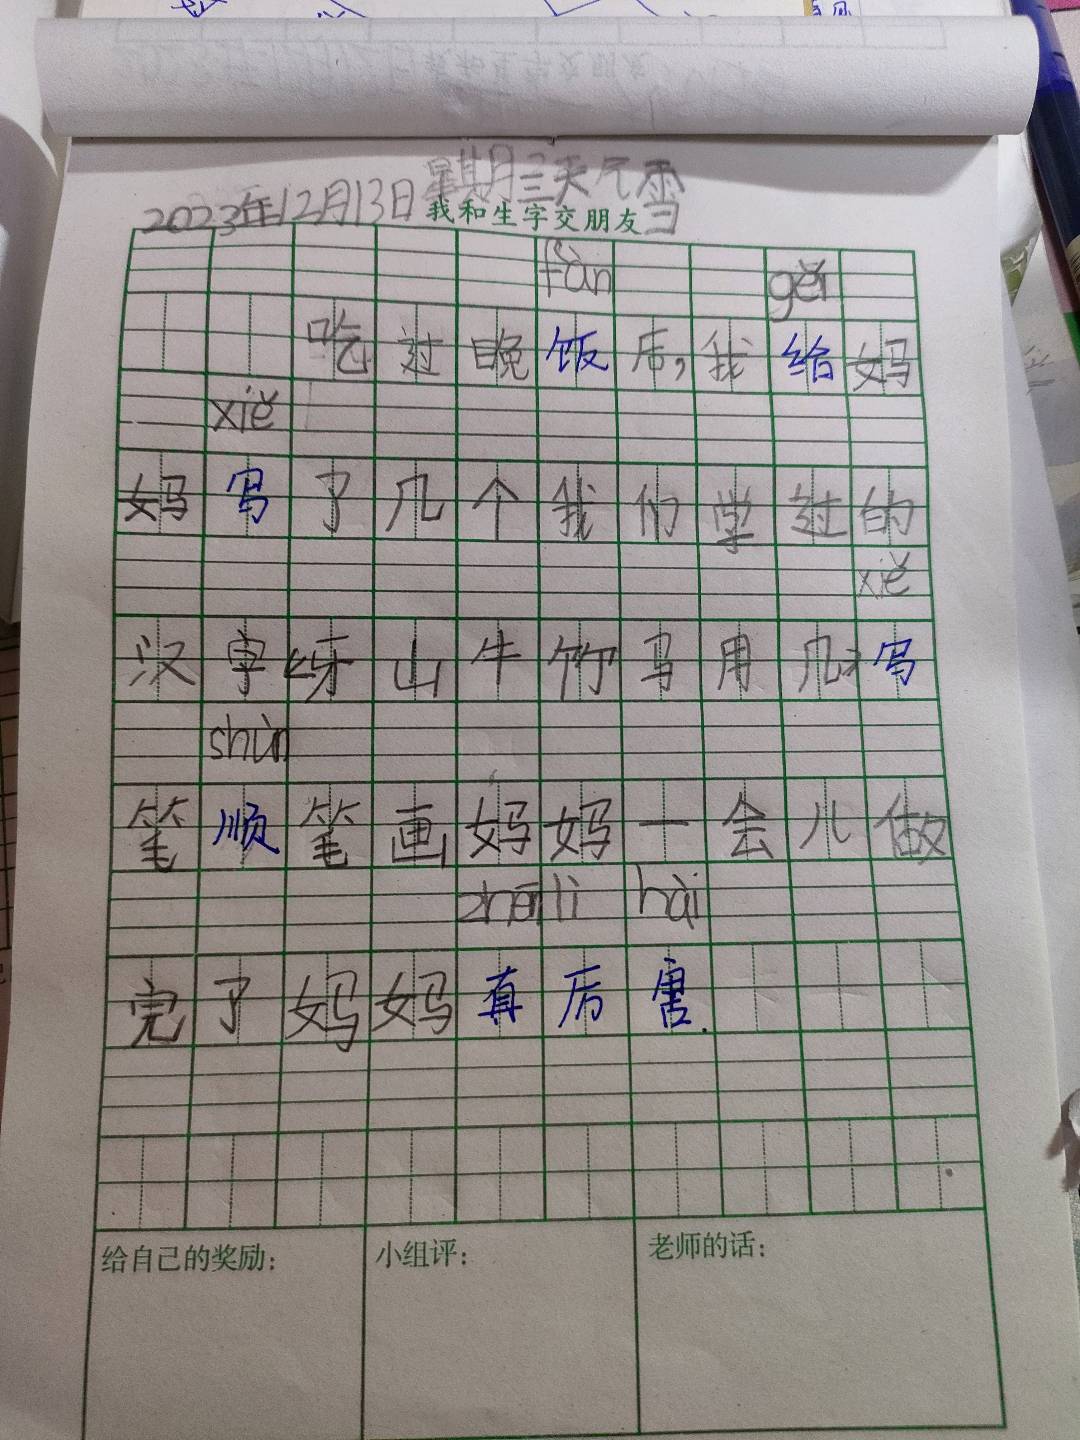 2023年12月13日星期三天气雪
我和生字交朋友
fàn gěi
吃过晚饭后,我给妈
xiě
妈写了几个我们学过的
xiě
汉字牙山牛竹马用几写
shùn
笔顺笔画妈妈一会儿做
zhēn lì hài
完了妈妈真厉害.
给自己的奖励:
小组评:
老师的话: